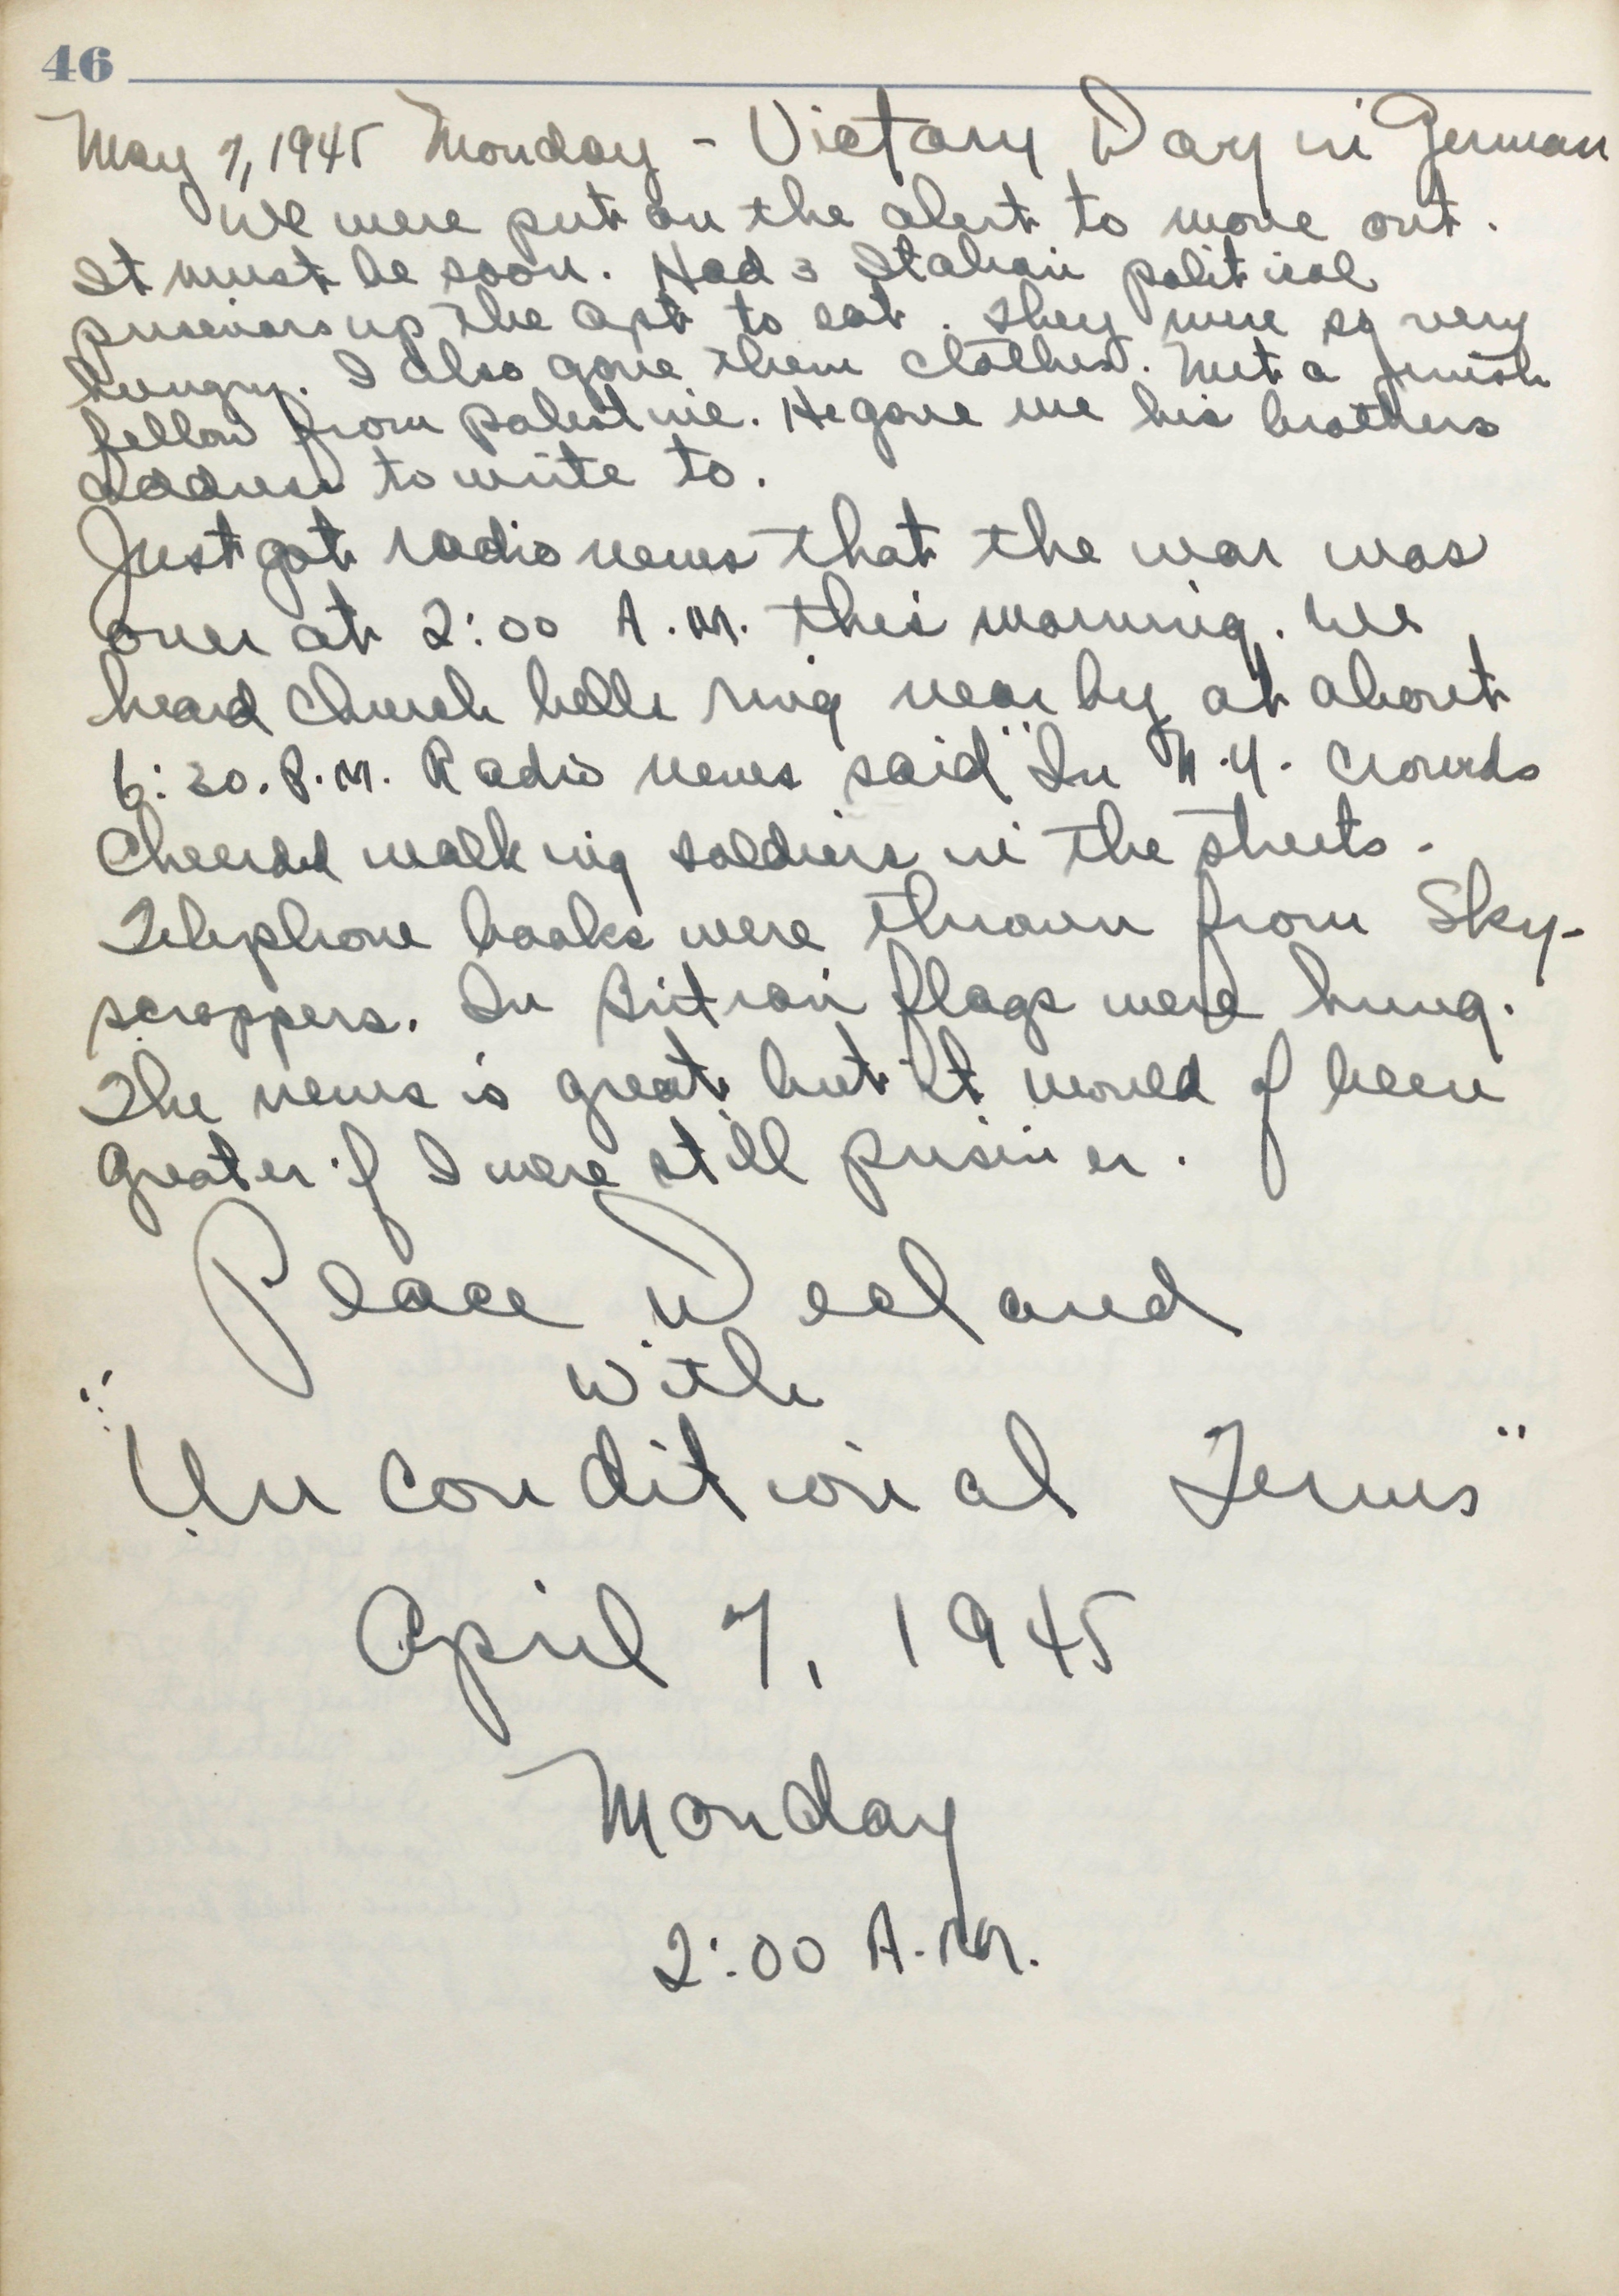 46
May 7, 1945 Monday - Victory Day in German
We were put on the alert to move out.
It must be soon. Had 3 Italian political
prisoners up the apt to eat. They were so very
hungry. I also gave them clothes. Met a Jewish
fellow from Palestine. He gave me his brothers
address to write to.
Just got radio news that the war was
over at 2:00 A.M. this morning. We
heard church bells ring near by at about
6:30. P.M. Radio news said "In N.Y. crowds
cheered walking soldiers in the streets.
Telephone books were thrown from Sky-
scrappers. In Britian flags were hung.
The news is great but it would of been
greater if I were still prisiner.
Peace Declared
with
"Unconditional Terms"
April 7, 1945
Monday
2:00 A.M.